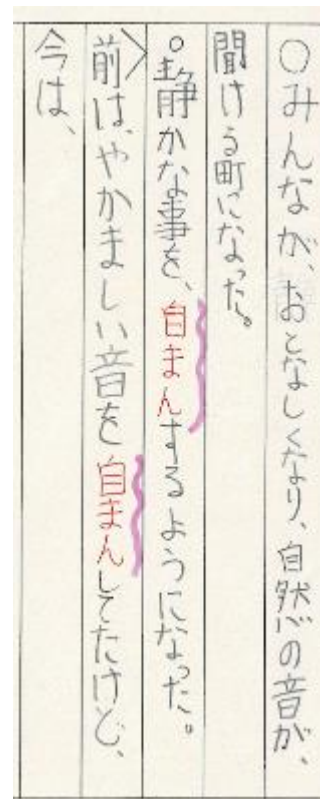 ○みんなが、おとなしくなり、自然の音が、
聞ける町になった。
○静かな事を、自まんするようになった。
前は、やかましい音を自まんしてたけど、
今は、